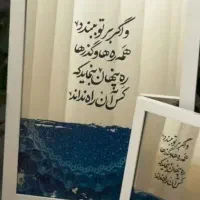 و اگر بر تو ببندد
همه ره‌ها و گذرها
ره پنهان بنماید که
کس آن راه نداند
و اگر بر تو ببندد
همه ره‌ها و گذرها
ره پنهان بنماید که
کس آن راه نداند